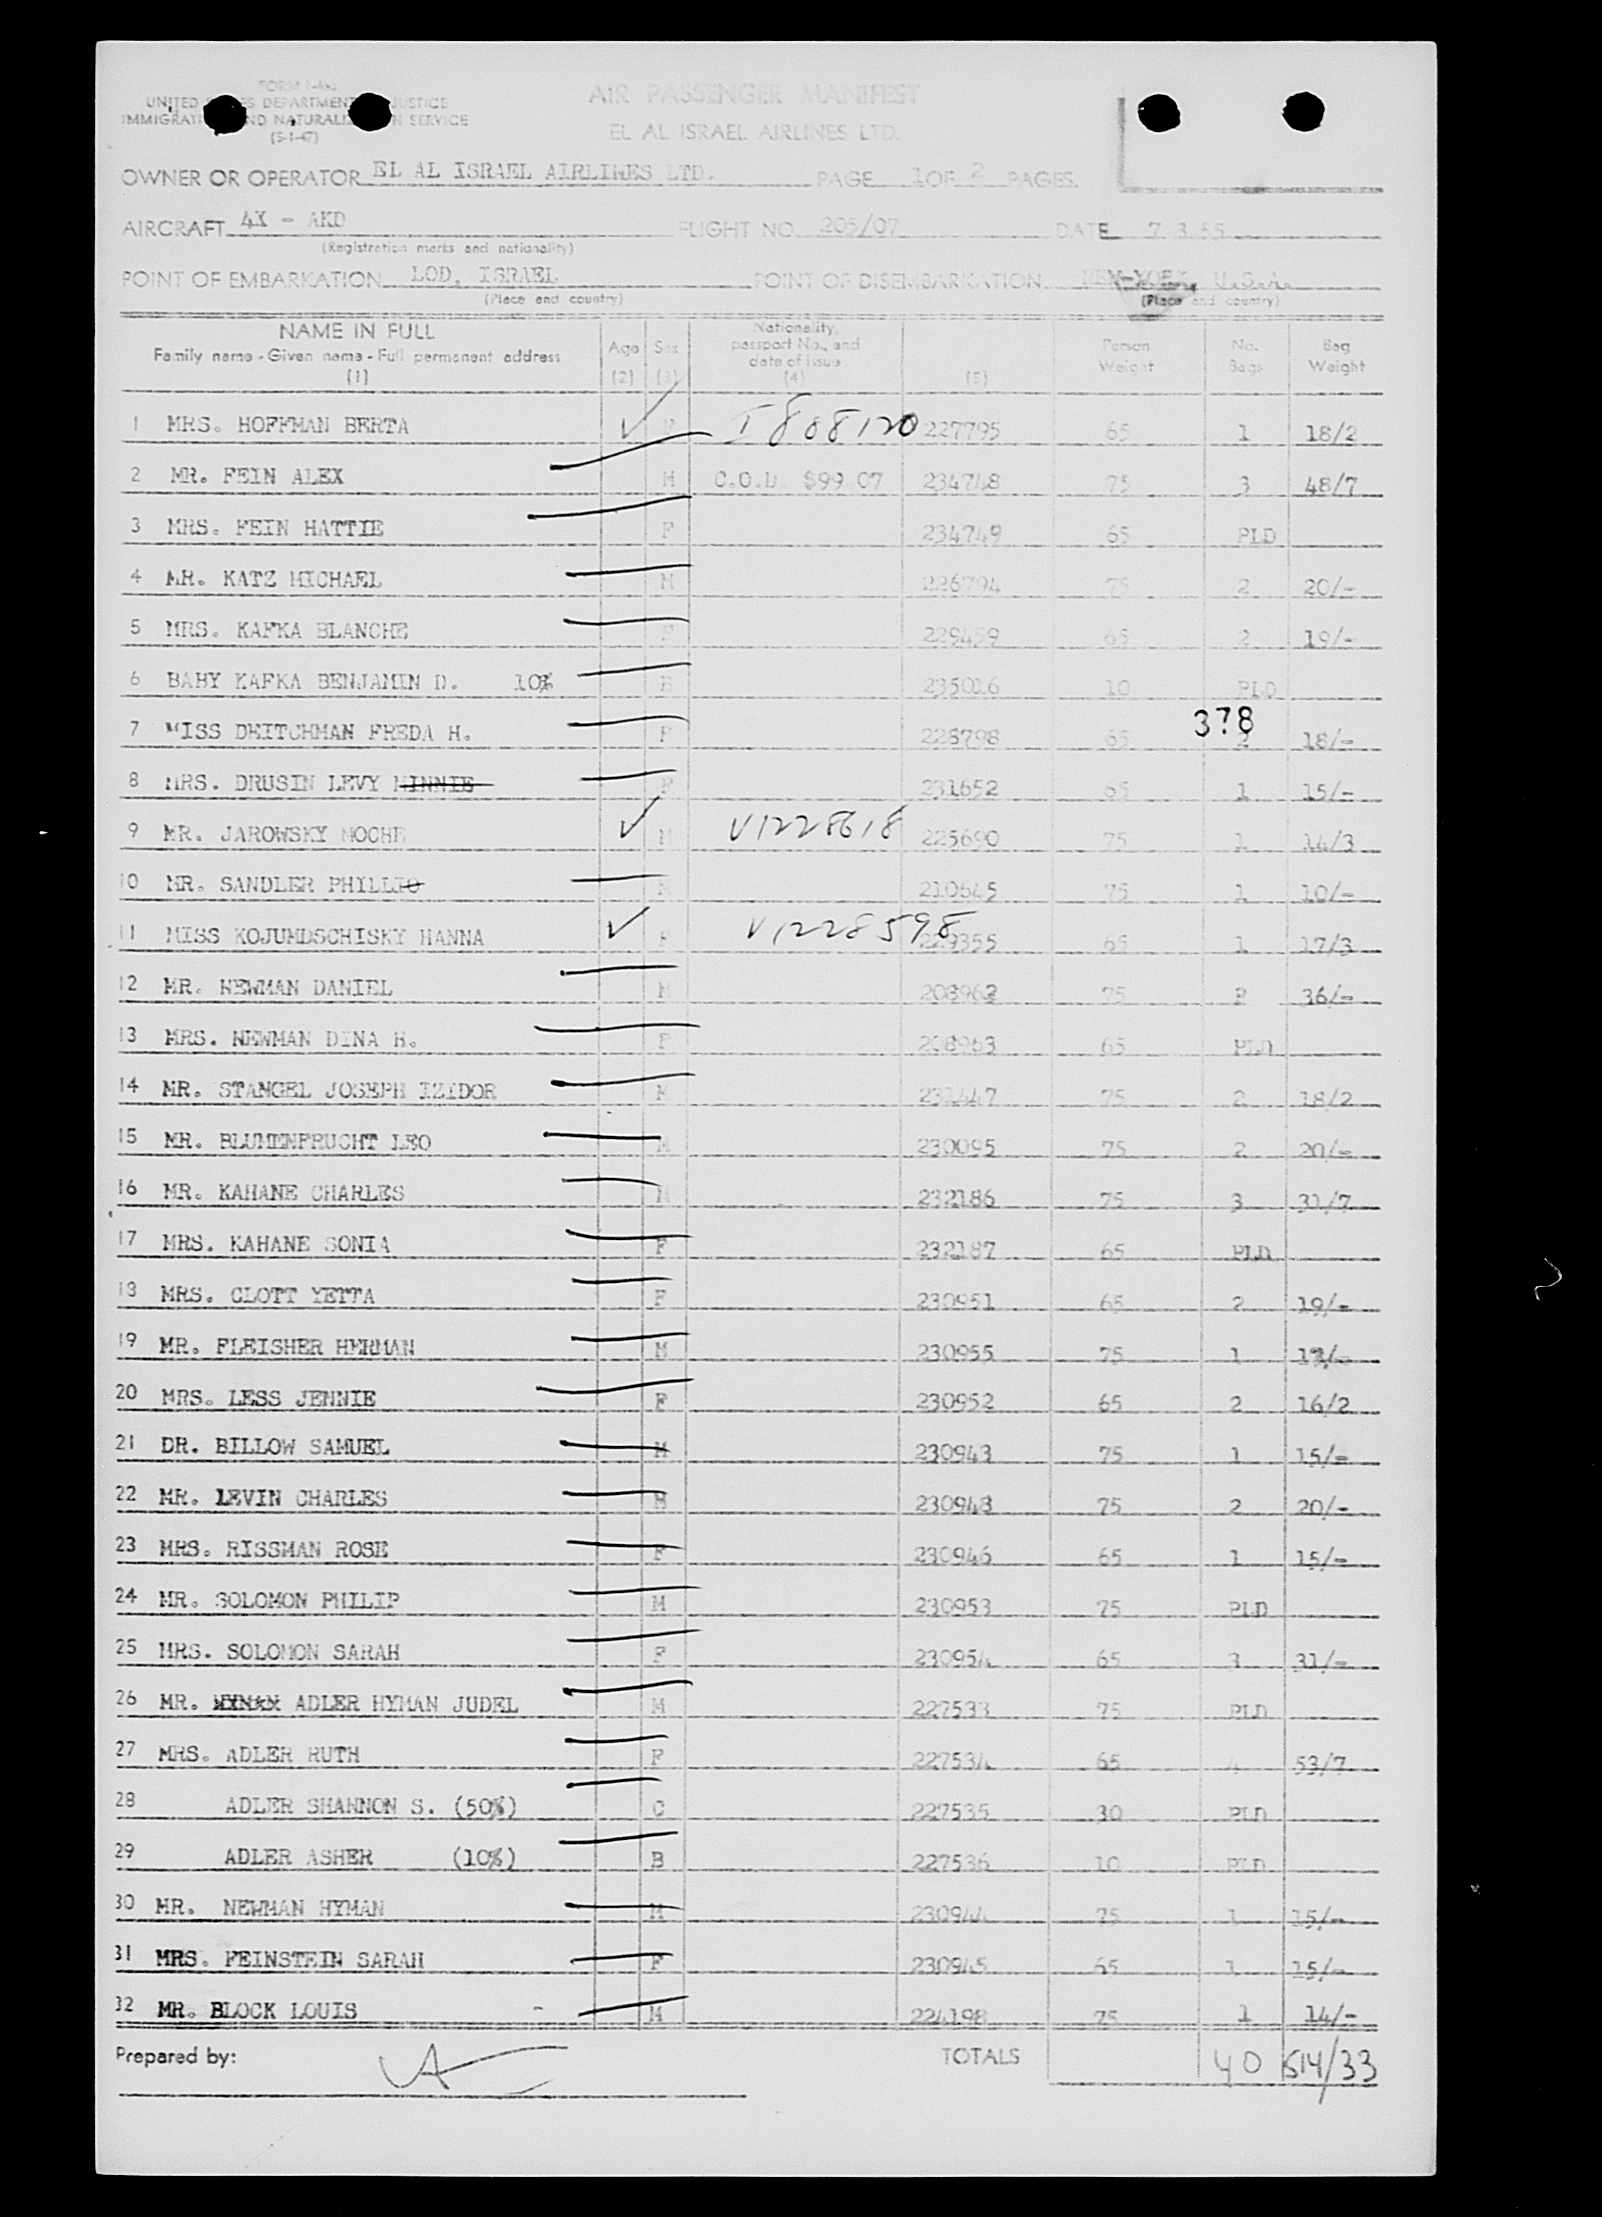 FORM I-
UNITED STATES DEPARTMENT OF JUSTICE
IMMIGRATION AND NATURALIZATION SERVICE
(5-1-47)
AIR PASSENGER MANIFEST
EL AL ISRAEL AIRLINES LTD.
OWNER OR OPERATOR EL AL ISRAEL AIRLINES LTD. PAGE 1 OF 2 PAGES
AIRCRAFT 4X - AKD FLIGHT NO. 205/07 DATE 7.3.55
(Registration marks and nationality)
POINT OF EMBARKATION LOD, ISRAEL POINT OF DISEMBARKATION NEW-YORK, U.S.A.
(Place and country) (Place and country)
NAME IN FULL
Family name - Given name - Full permanent address
(1)
Age (2) Sex (3) Nationality, passport No., and date of issue (4) (5) Person Weight No. Bags Bag Weight
1 MRS. HOFFMAN BERTA F I 808120 227795 65 1 18/2
2 MR. FEIN ALEX M C.O.D. $99 07 234748 75 3 48/7
3 MRS. FEIN HATTIE F 234749 65 PLD
4 MR. KATZ MICHAEL M 226794 75 2 20/-
5 MRS. KAFKA BLANCHE F 229459 65 2 19/-
6 BABY KAFKA BENJAMIN D. 10% B 235016 10 PLD
378
7 MISS DEITCHMAN FREDA H. F 228798 65 2 18/-
8 MRS. DRUSIN LEVY MINNIE F 231652 65 1 15/-
9 MR. JAROWSKY MOCHE M V1228618 225690 75 1 14/3
10 MR. SANDLER PHYLLIO M 210645 75 1 10/-
11 MISS KOJUMDSCHISKY HANNA F V1228598 229355 65 1 17/3
12 MR. NEWMAN DANIEL M 208962 75 2 36/-
13 MRS. NEWMAN DINA H. F 208963 65 PLD
14 MR. STANGEL JOSEPH IZIDOR M 231447 75 2 18/2
15 MR. BLUMENFRUCHT LEO M 230095 75 2 20/-
16 MR. KAHANE CHARLES M 232186 75 3 31/7
17 MRS. KAHANE SONIA F 232187 65 PLD
18 MRS. CLOTT YETTA F 230951 65 2 19/-
19 MR. FLEISHER HERMAN M 230955 75 1 13/-
20 MRS. LESS JENNIE F 230952 65 2 16/2
21 DR. BILLOW SAMUEL M 230943 75 1 15/-
22 MR. LEVIN CHARLES M 230948 75 2 20/-
23 MRS. RISSMAN ROSE F 230946 65 1 15/-
24 MR. SOLOMON PHILIP M 230953 75 PLD
25 MRS. SOLOMON SARAH F 230954 65 3 31/-
26 MR. ADLER HYMAN JUDEL M 227533 75 PLD
27 MRS. ADLER RUTH F 227534 65 4 53/7
28 ADLER SHANNON S. (50%) C 227535 30 PLD
29 ADLER ASHER (10%) B 227536 10 PLD
30 MR. NEWMAN HYMAN M 230944 75 1 15/-
31 MRS. FEINSTEIN SARAH F 230945 65 1 15/-
32 MR. BLOCK LOUIS - M 224198 75 1 14/-
Prepared by: TOTALS 40 514/33